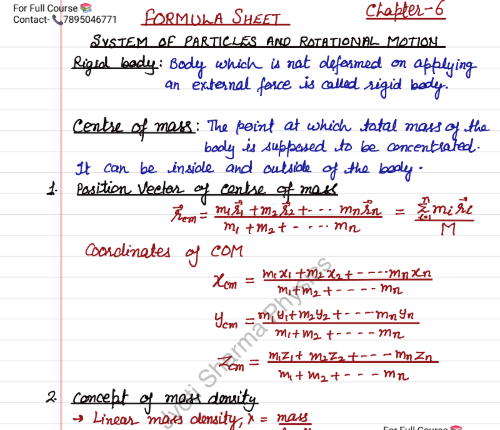 For Full Course 📚
Contact- 📞7895046771
FORMULA SHEET
Chapter-6
SYSTEM OF PARTICLES AND ROTATIONAL MOTION
Rigid body: Body which is not deformed on applying
an external force is called rigid body.
Centre of mass: The point at which total mass of the
body is supposed to be concentrated.
It can be inside and outside of the body.
1. Position Vector of centre of mass
r⃗cm = m₁r⃗₁ + m₂r⃗₂ + ---- mₙr⃗ₙ / m₁ + m₂ + - ---- mₙ = ⁿΣᵢ₌₁ mᵢ r⃗ᵢ / M
Coordinates of COM
xcm = m₁x₁ + m₂x₂ + -----mₙxₙ / m₁+m₂+ - --- mₙ
ycm = m₁y₁+m₂y₂ + ----mₙyₙ / m₁+m₂+ - - - - mₙ
zcm = m₁z₁+ m₂z₂+ -- - mₙzₙ / m₁ + m₂+ - -- mₙ
Jyoti Sharma Physics
2. Concept of mass density
→ Linear mass density, λ = mass
For Full Course 📚